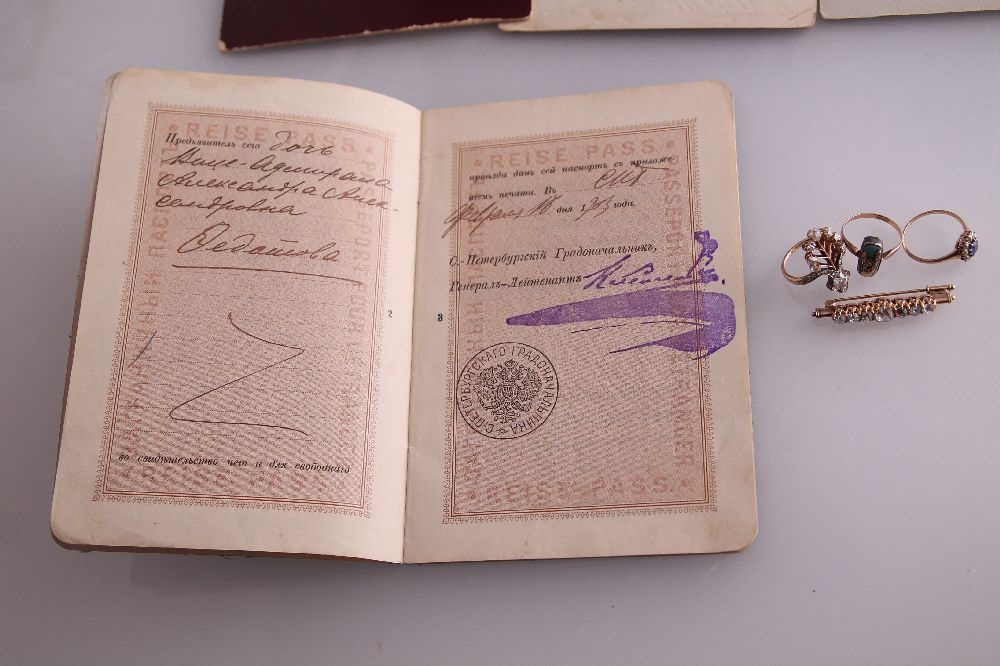 REISE PASS.
Предъявитель сего Дочь
Вице-Адмирала
Александра Алек-
сандровна
во свидѣтельство чего и для свободнаго
REISE PASS.
2
REISE PASS.
проѣзда данъ сей паспортъ съ приложе
ніемъ печати. Въ СПб
Февраля 18 дня 1903 года.
С.-Петербургскій Градоначальникъ,
Генералъ-Лейтенантъ
С.ПЕТЕРБУРГСКАГО ГРАДОНАЧАЛЬНИКА
REISE-PASS.
3